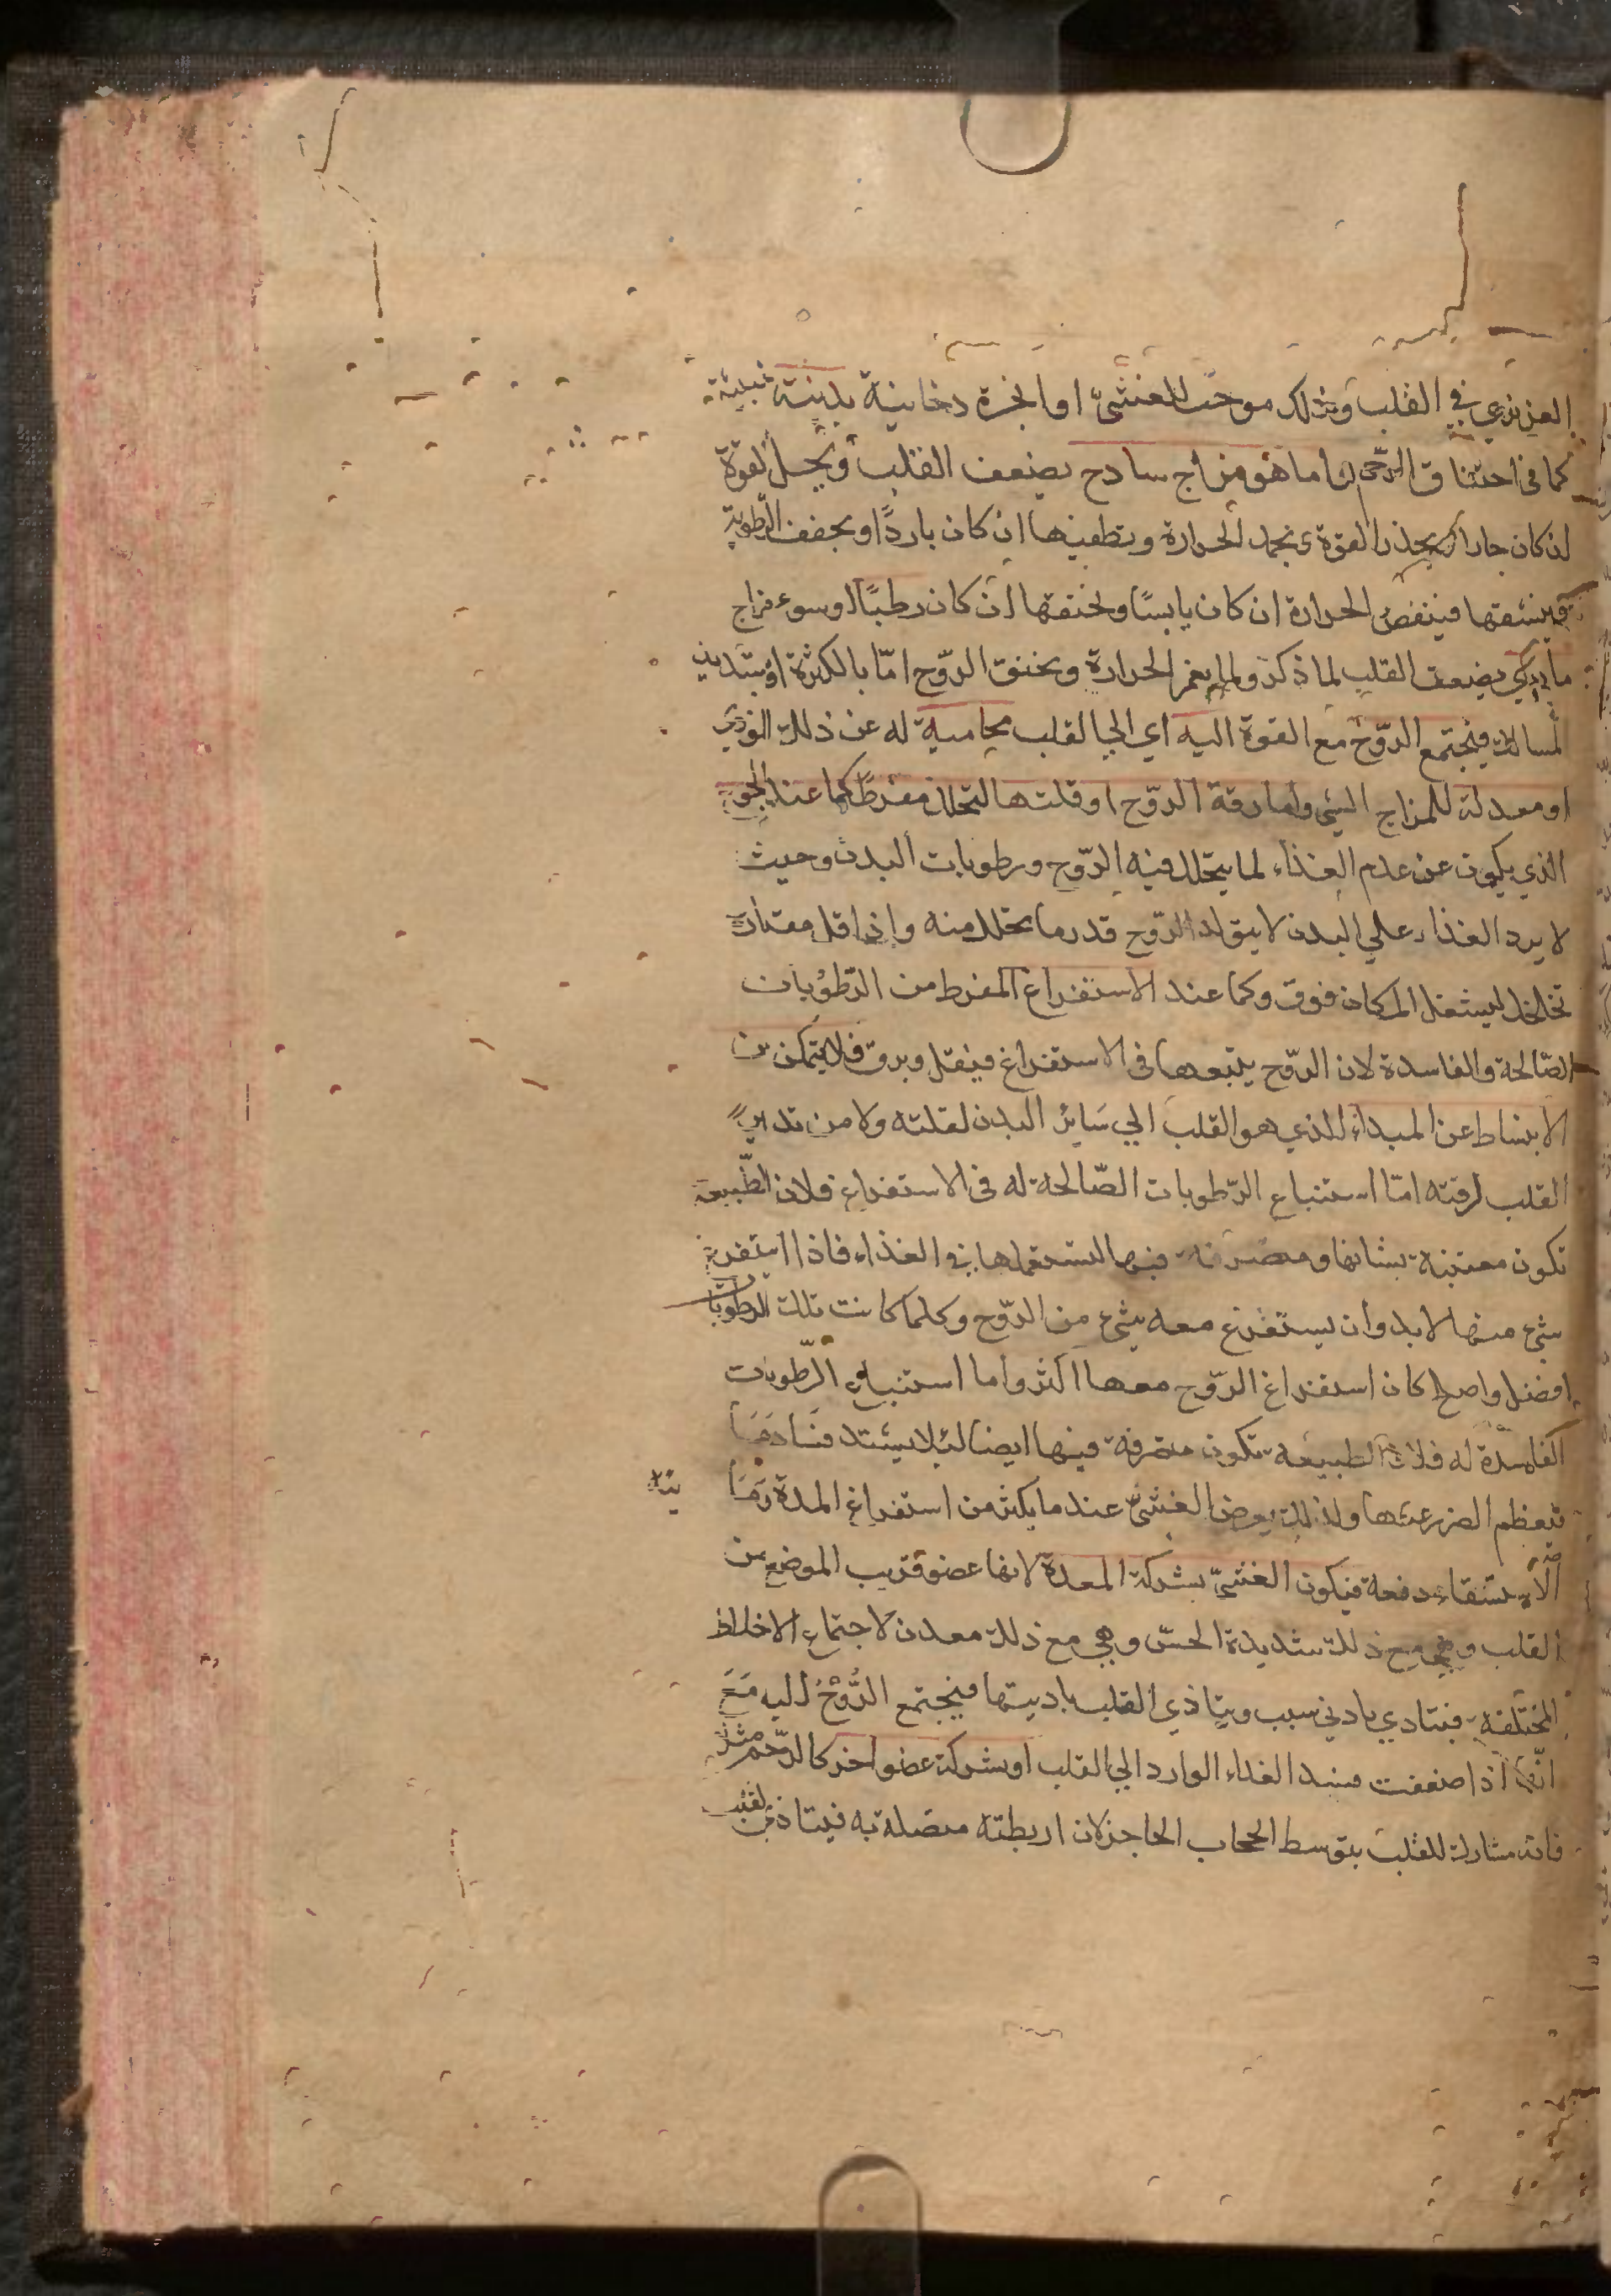 الغريزي في القلب وذلك موجب للغشي او ابخرة دخانية بدنية خبيثة
كما في احتناق الرحم اما ما هو مزاج سادج يضعف القلب ويحلل القوة
ان كان حارا القوة ويجمد الحرارة ويطفيها ان كان باردًا ويجفف الرطوبة
وينشفها فينقص الحرارة ان كان يابسًا ويخنقها ان كان رطبًا او سوء مزاج
مادي يضعف القلب لما ذكر ولما يغمر الحرارة ويخنق الروح امّا بالكثرة او بتسديد
المسالك فيجتمع الروّح مع القوة اليه اي الي القلب محامية له عن ذلك الموذي
او معدلة للمزاج السيّ واما رقة الروّح او قلتها لتحلل مفرط كما عند الجوع
الذي يكون عن عدم الغذاء لما يتحلل فيه الروّح ورطوبات البدن وحيث
لا يرد الغذاء علي البدن لا يتولد الروّح قدر ما يتحلل منه واذا قل مقداره
تخلخل ليشغل المكان فرق وكما عند الاستفراغ المفرط من الرّطوبات
الصّالحة والفاسدة لان الروّح يتبعها في الاستفراغ فيقل ويرق فلا يتمكن من
الانبساط عن المبداء الذي هو القلب الي سَائر البدن لقلته ولا من تدبير
القلب لرقته امّا استتباع الرّطوبات الصّالحة له في الاستفراغ فلان الطّبيعة
تكون معتنية بشانها ومتصرفة فيها لتستعملها في الغذاء فاذا استفرغ
شيء منها لا بد وان يستفرغ معه شيء من الروّح وكلما كانت تلك الرطوبات
افضل واصلح كان استفراغ الروّح معها اكثر واما استتباع الرّطوبات
الفاسدة له فلان الطبيعه تكون متصرفة فيها ايضا لئلا يشتد فسَادهَا
فيعظم الضرر عنها ولذلك يعرض الغشيّ عندما يكثر من استفراغ المدة ومَا
الاستسقاء دفعة فيكون الغشيّ بشركة المعدة لانها عضو قريب الموضع من
القلب وهي مع ذلك شديدة الحسّ وهي مع ذلك معدن لاجتماع الاخلاط
المختلفة فيتاذي بادني سبب ويتاذي القلب باديتها فيجتمع الرُّوحُ اليه مَعَ
انّها اذا ضعفت فسد الغداء الوارد الي القلب او بشركة عضو اخر كالرّحم مثلا
فانه مشارك للقلب بتوسط الحجاب الحاجز لان اربطته متصلة به فيتاذي